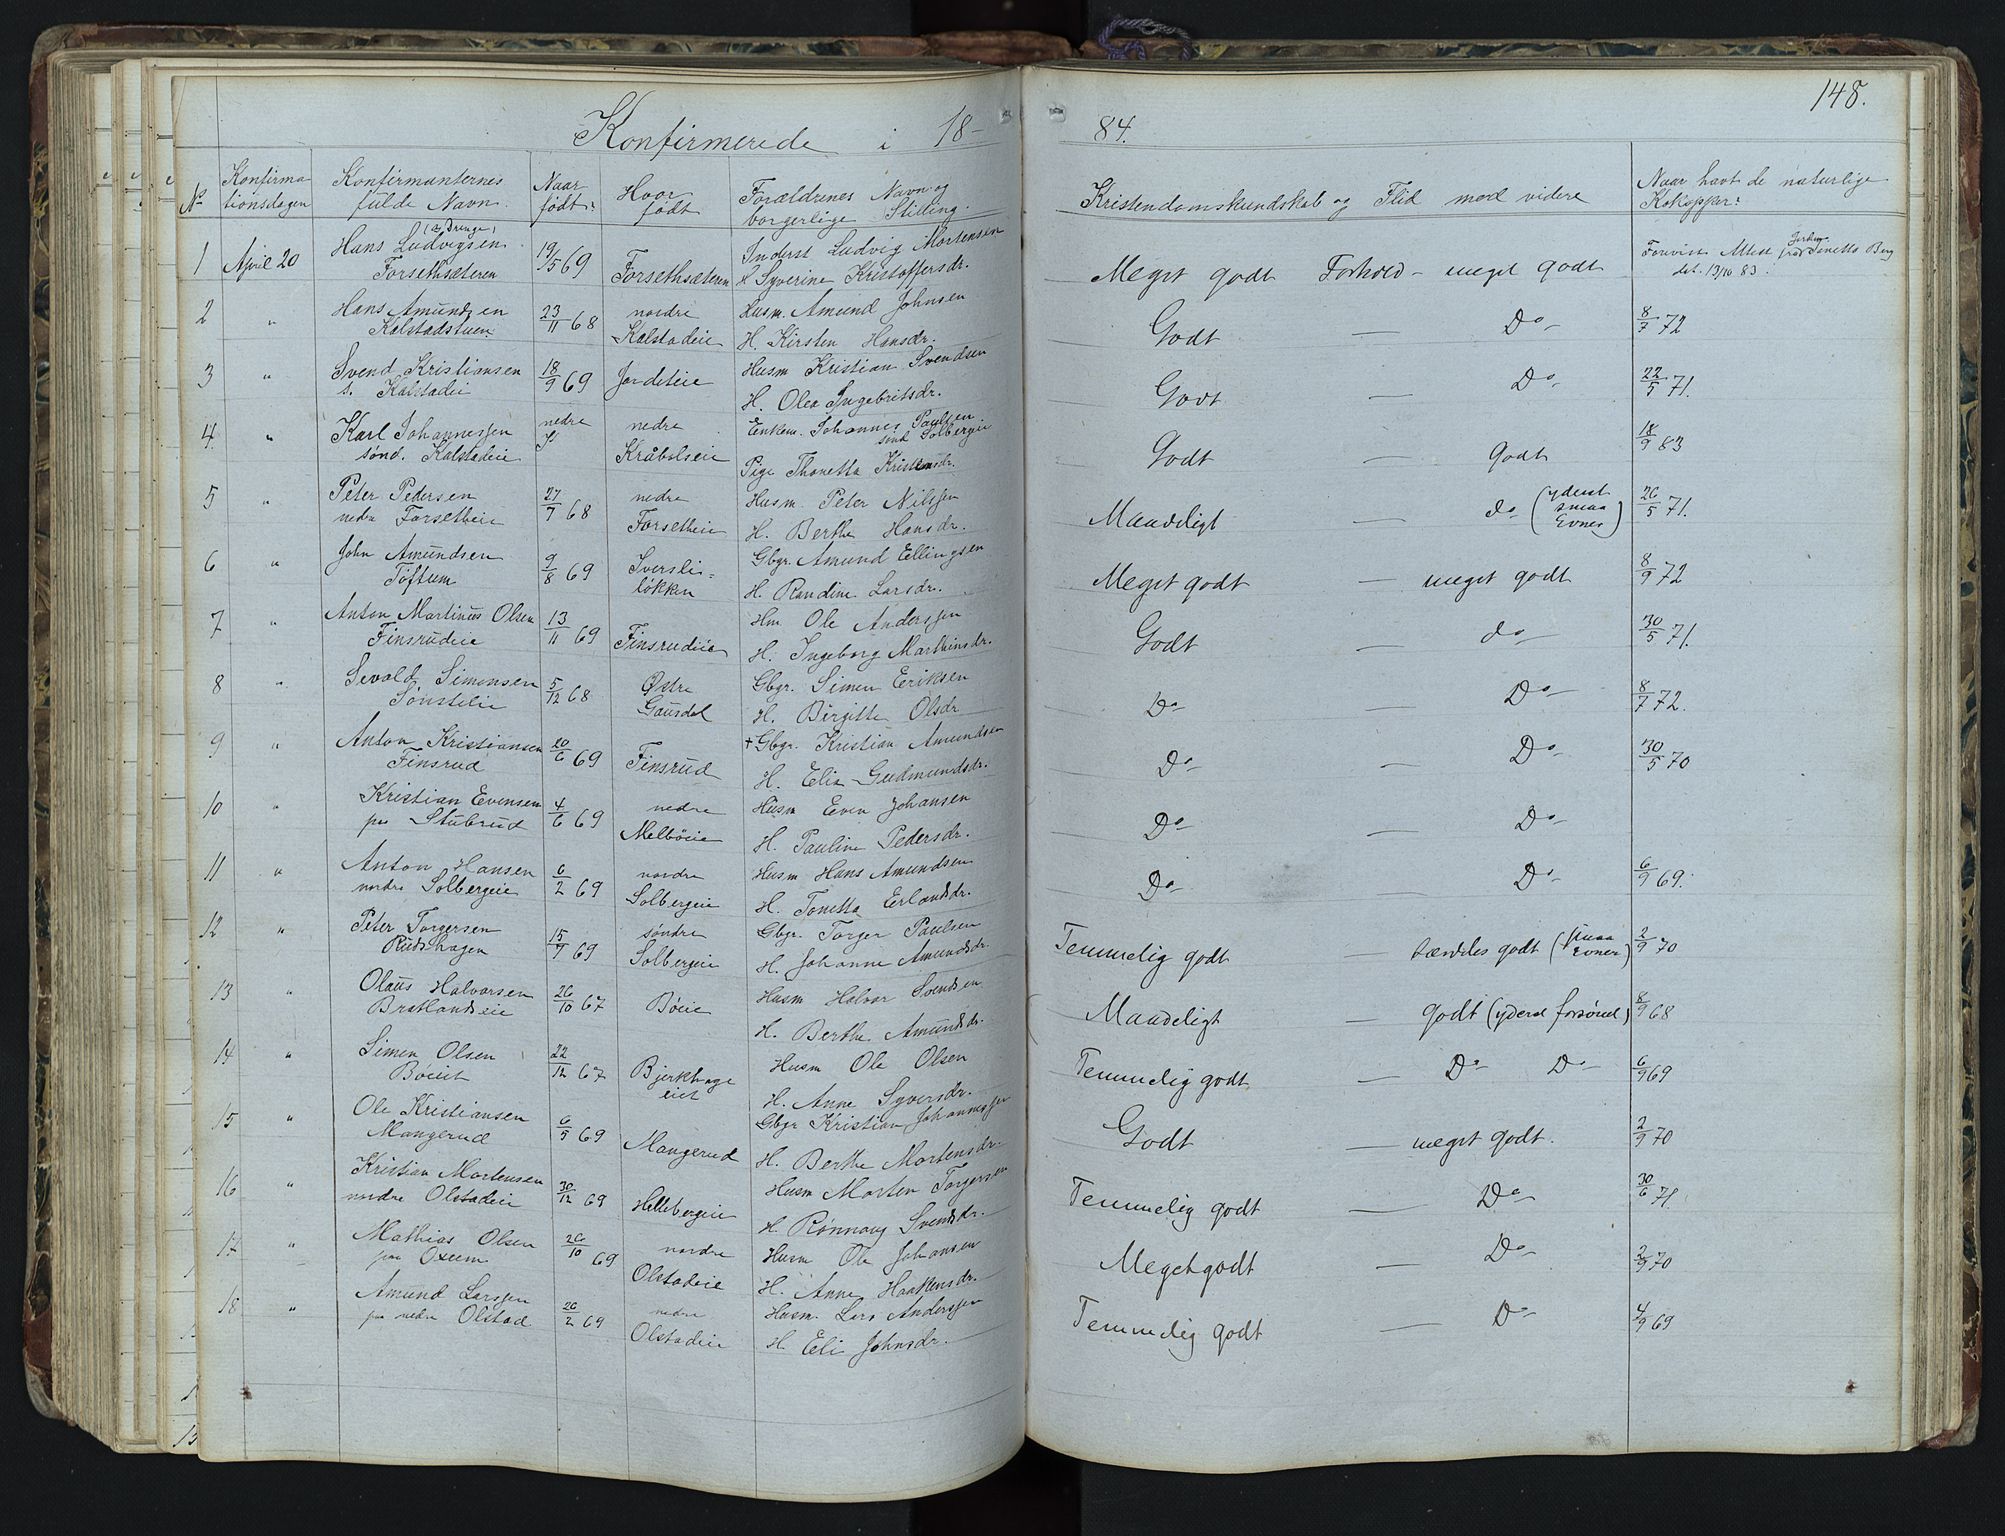 148.
Konfirmerede i 18- 84.
No Konfirma tionsdagen Konfirmanternes fulde Navn. Naar født? Hvor født Forældrenes Navn og borgerlige Stilling. Kristendomskundskab og Flid med videre Naar havt de naturlige Kokopper?
(a, Drenge,)
1 April 20 Hans Ludvigsen 19/5 69 Inderst Ludvig Mortensen
Forsethsæteren Forsethsæteren H. Syverine Kristoffersdr. Meget godt Forhold - meget godt Forevist Attest fra Jordm. Tonetta Berg
det. 13/10 83.
2 " Hans Amundsen 23/11 68 nordre Husm. Amund Johnsen
Kalstadstuen Kalstadeie H. Kirsten Hansdr. Godt — Do- 8/7 72
3 " Svend Kristiansen 18/9 69 Jordeteie Husm Kristian Svendsen
s. Kalstadeie H. Olea Ingebritsdr. Godt — Do- 22/5 71.
4. " Karl Johannessen nedre nedre Enkem. Johannes Paulsen
sønd. Kalstadeie Kråbølseie sønd Solbergeie
Pige Thonetta Kristensdr. Godt — Godt 18/9 83
5 " Peter Pedersen 27/7 68 nedre Husm Peter Nilssen
nedre Forsetheie Forsetheie H. Berthe Hansdr. Maadeligt — do (yderst smaa Evner) 26/5 71.
6 " John Amundsen 9/8 69 Iversli= Gbgr. Amund Ellingsen
Toftum løkken H. Randine Larsdr. Meget godt — meget godt 8/9 72
7 " Anton Martinus Olsen 13/11 69 Hm Ole Anderssen
Finsrudeie Finsrudeie H. Ingeborg Marthinsdr. Godt — do- 30/5 71.
8 " Sevald Simensen 5/12 68 Østre Gbgr. Simen Eriksen
Sønstelie Gausdal H. Birgitte Olsdr Do- Do- 8/7 72.
9 " Anton Kristiansen 20/6 69 + Gbgr. Kristian Amundsen
Finsrud Finsrud H. Elia Gudmundsdr. Do- — Do- 30/5 70
10 " Kristian Evensen 4/6 69 nedre Husm Even Johansen
paa Stubrud Melbøeie H. Pauline Pedersdr. Do- — Do-
11 " Anton Hansen 6/2 69 nordre Husm Hans Amundsen
nordre Solbergeie Solbergeie H. Tonetta Erlandsdr. Do- — Do- 6/9 69.
12 " Peter Torgersen 15/9 69 søndre Gbgr. Torger Paulsen
Rudshagen Solbergeie H. Johanne Amundsdr. Temmelig godt — særdeles godt (smaa Evner) 2/9 70
13 " Olaus Halvorsen 26/10 67 Bøeie Husm Halvor Svendsen
Bratlandseie H. Berthe Amundsdr. Maadeligt — godt (yderst forsømt) 8/9 68
14 " Simen Olsen 22/12 67 Bjerkhage Husm Ole Olsen
Bøeiet eiet H. Anne Syversdr. Temmelig godt — Do Do- 6/9 69
15 " Ole Kristiansen 6/5 69 Gbgr Kristian Johannessen
Mangerud Mangerud H. Berthe Mortensdr. Godt — meget godt. 2/9 70
16 " Kristian Mortensen 30/12 69 Husm Morten Torgersen
nordre Olstadeie Hellebergeie H. Rønnaug Svendsdr. Temmelig godt — Do- 30/6 71.
17 " Mathias Olsen 26/10 69 nordre Husm Ole Johansen
paa Oxum Olstadeie H. Anne Haakensdr. Meget godt — Do- 2/9 70
18 " Amund Larssen 26/2 69 nedre Husm. Lars Anderssen
paa nedre Olstad Olstadeie H. Eli Johnsdr. Temmelig godt — Do- 4/9 69